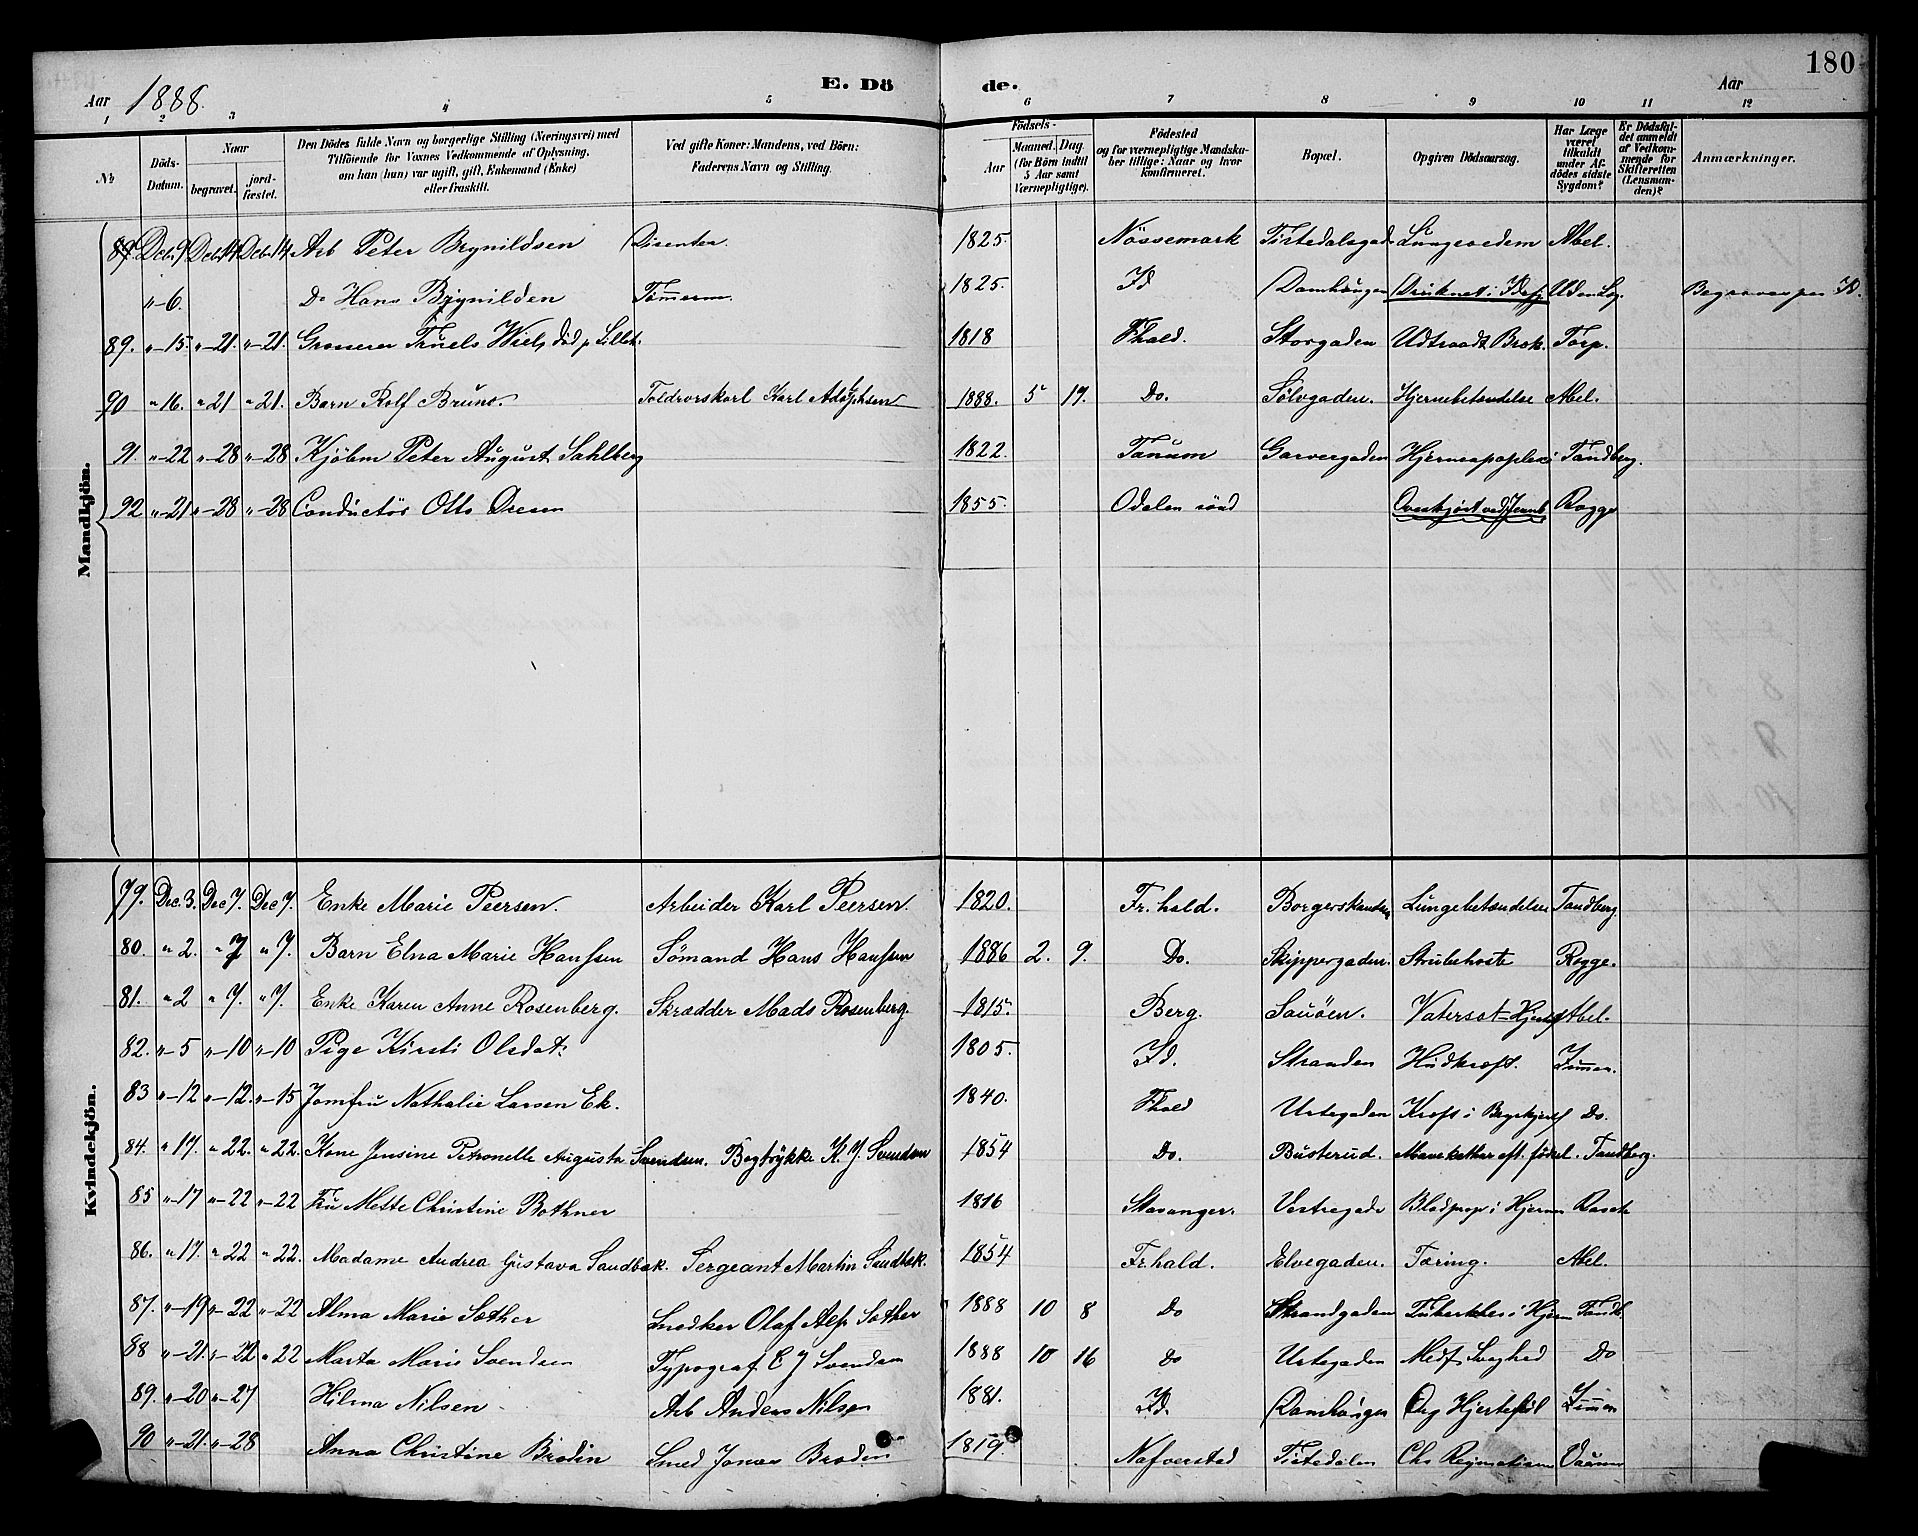 180
Aar 1888. E. Dö de. Aar
1 2 3 4 5 6 7 8 9 10 11 12
No Döds-Datum. Naar begravet. jord-fæstet. Den Dödes fulde Navn og borgerlige Stilling (Næringsvei) med Tilföiende for Voxnes Vedkommende af Oplysning, om han (hun) var ugift, gift, Enkemand (Enke) eller fraskilt. Ved gifte Koner: Mandens, ved Börn: Faderens Navn og Stilling. Födsels- Aar Maaned. Dag (for Börn indtil 5 Aar samt Værnepligtige). Födested og for værnepligtige Mandskaber tillige: Naar og hvor konfirmeret. Bopæl. Opgiven Dödsaarsag. Har Læge været tilkaldt under Afdödes sidste Sygdom? Er Dödsfaldet anmeldt af Vedkommende for Skifteretten (Lensmanden)? Anmærkninger.
Mandkjön.
Dec. 9 Dec. 14 Dec. 14 Arb Peter Brynildsen Disenter. 1825. Nössemark Tistedalsgad Lungeoedem Abel.
"-6. Do Hans Brynilden Tömmerm. 1825. Id Damhaugen Druknet i Uden Læg. Id.
89. "-15. "-21. "-21. Grosserer Truels Wiel, 1818 Fhald. Storgaden Udtraadt Brok. Torp.
90 "16. "21 "21. Barn Rolf Bruno. Karl Adolphsen 1888. 5 17. Do. Sölvgaden. Hjernebetændelse Abel.
91. "-22 "-28 "-28 Kjöbm Peter August Sahlberg 1822. Tanum Garvergaden Hjerneapoplexi Tandberg.
92 "-21 "-28 "-28 Conductör Otto Oresen 1855. Odalen sönd Overkjört ved Jernb Rogge
Kvindekjön.
79. Dec. 3. Dec 7. Dec 7. Enke Marie Peersen. Arbeider Karl Peersen 1820. Fr.hald. Borgerskandsen Lungebetændelse Tandberg
80. " 2. " 7 " 7. Barn Elna Marie Hanssen Sömand Hans Hanssen 1886 2. 9. Do. Skippergaden. Strubehoste Rogge.
81. " 2 " 7. " 7. Enke Karen Anne Rosenberg. Skrædder Mads Rosenberg. 1815. Berg. Sauöen. Vatersot-Hjertef Abel.
82. "-5 "-10 "-10 Pige Kirsti Olsdat. 1805. Id. Stranden Hudkræft.
83 "-12 "-12. "-15 Jomfru Nathalie Larsen Ek. 1840. Fhald Urtegaden Kræft i Do.
84. " 17. " 22. " 22. Kone Jensine Petronelle Augusta Svendsen. Bogtrykke K. J. Svendsen 1854 Do. Busterud. Mavekathar eft. födsel. Tandberg.
85 "-17 "-22 "-22 Fru Mette Christine Bothner 1816 Stavanger. Vestregade Blodprop i Hjernen Rasch
86. " 17. " 22 " 22. Madame Andrea Gustava Sandbæk. Sergeant Martin Sandbæk. 1854 Fr.hald. Elvegaden. Tæring. Abel.
87. "-19 "-22 "-22 Alma Marie Sæther Snedker Olaf Alf Sæther 1888 10 8 Do Strandgaden Tuberkler i Hjern Tandb.
88 "-21. "-22 "22 Marta Marie Svendsen Typograf C J Svendsen 1888 10 16 do Urtegaden Medf Svaghed Do
89. "-20 "-27 Hilma Nilsen Arb Anders Nilsen 1881. Id. Damhaugen Org Hjertefeil
90 "-21. "-28 Anna Christine Brodin Smed Jonas Broden 1819. Nafverstad Tistedalen Chr Reumatisme